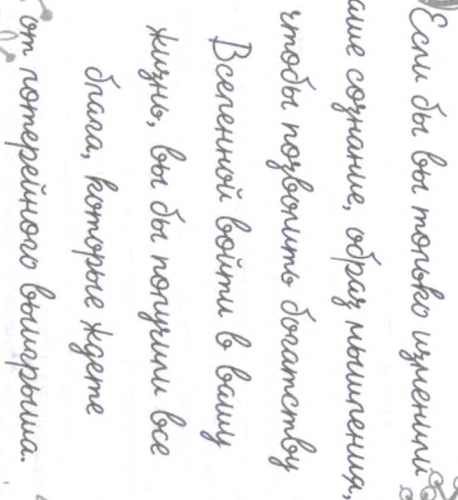 Если бы вы только изменили
аше сознание, образ мышления,
чтобы позволить богатству
Вселенной войти в вашу
жизнь, вы бы получили все
блага, которые ждете
от лотерейного выигрыша.